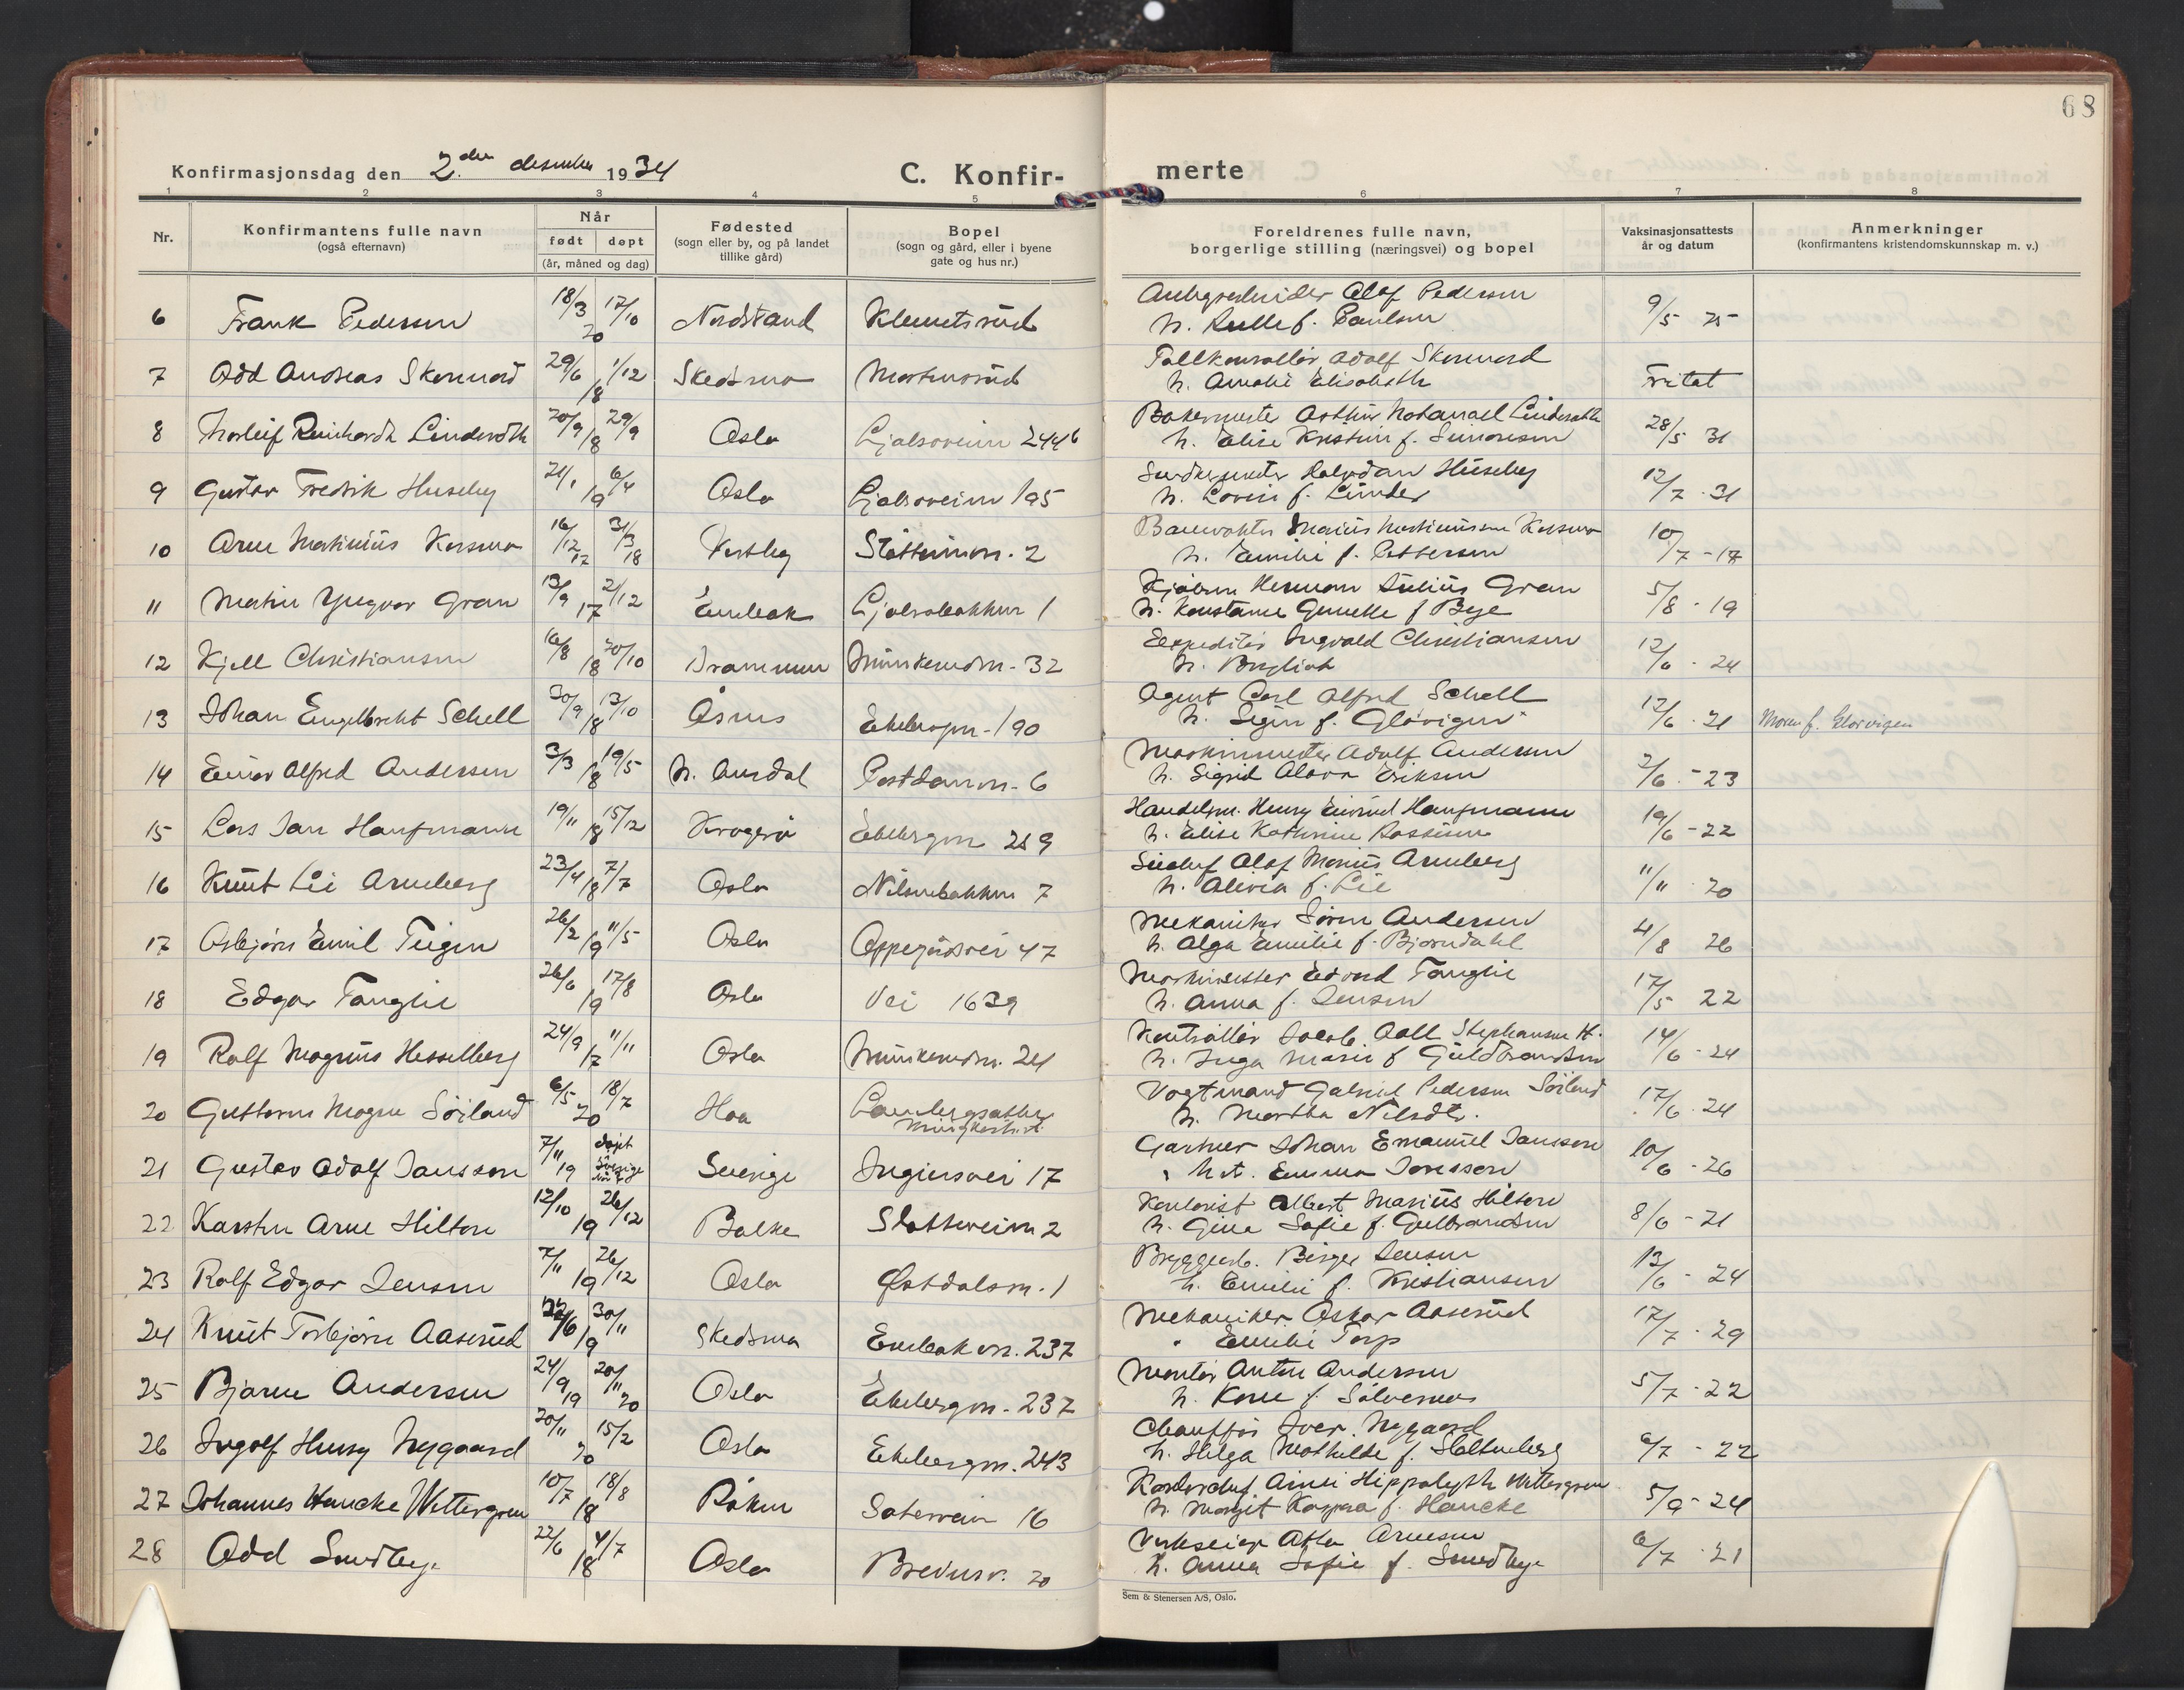 68
Konfirmasjonsdag den 2. den desember 1934
C. Konfir-
merte
1 2 3 4 5 6 7 8
Nr.
Konfirmantens fulle navn
(også efternavn)
Når
født døpt
(år, måned og dag)
Fødested
(sogn eller by, og på landet
tillike gård)
Bopel
(sogn og gård, eller i byene
gate og hus nr.)
Foreldrenes fulle navn,
borgerlige stilling (næringsvei) og bopel
Vaksinasjonsattests
år og datum
Anmerkninger
(konfirmantens kristendomskunnskap m. v.)
6 Frank Pedersen 18/3 17/10 20 Nordstrand Klemetsrud Olaf Pedersen 9/5 25
h. f. Paulsen
7 Odd Andreas 29/6 1/12 18 Skedsmo Mortensrud Adolf Fritat
h. Amalie Elisabeth
8 Thorleif Reinhardt Linderoth 20/9 29/9 18 Oslo Ljabrveien 244b Bakermester Arthur Natanael Linderoth 28/5 31
h. Elise Kristine f. Simonsen
9 Gustav Fredrik Huseby 21/1 6/4 19 Oslo Ljabroveien 195 Halvdan Huseby 12/7 31
h. Lovise f. Linder
10 Arne Martinius Korsmo 16/12 17 31/3 18 Vestby 2 Banevokter Marius Martiniussen Korsmo 10/7 - 17
h. Emilie f. Pettersen
11 Martin Yngvar Gran 13/9 2/12 17 Enebak Ljabrobakken 1 Herman Julius Gran 5/8 - 19
h. Konstance Gunelle f Bye
12 Kjell Christiansen 16/8 20/10 18 Drammen Munkerudvn. 32 Expeditør Ingvald Christiansen 12/6 - 24
h. Bergliot
13 Johan Engelbrecht Schell 30/9 13/10 18 Åsnes Ekebergvn. 190 Agent Carl Alfred Schell 12/6 21 Moren f. Glorvigen
h. Signe f. Glorvigen
14 Einar Alfred Andersen 3/3 19/5 18 N. Aurdal Postdamvn. 6 Maskinmester Adolf Andersen 2/6 - 23
h. Sigrid Alora Eriksen
15 Lars Jan Haufmann 19/11 15/12 18 Kragerø Ekebergvn 259 Handelsm. Henry Eivind Haufmann 19/6 - 22
h. Elise Kathrine
16 Knut Lie Arneberg 23/4 7/7 18 Oslo Nilsenbakken 7 Olaf Marius Arneberg 11/11 20
h. Alivia f. Lie
17 Asbjørn Emil Teigen 26/2 11/5 19 Oslo Oppegårdsvei 47 Mekaniker Søren Andersen 4/8 26
h. Olga Emilie f. Bjørndahl
18 Edgar Tanglie 26/6 17/8 19 Oslo Vei 1639 Edvard Tanglie 17/5 22
h. Anna f. Jensen
19 Ralf Magnus Hesselberg 24/9 11/11 17 Oslo Munkerudvn. 24 Kontrollør Jacob Aall Stephansen H. 14/6 - 24
h. Inga Marie f Guldbrandsen
20 Guttorm Magne Söiland 6/5 18/7 20 Haa Vogtmand Gabriel Pedersen Söiland 17/6 24
h. Martha Nilsdtr.
21 Gustav Adolf Jansson 7/11 19 døpt Sverige Sverige Ingiersvei 17 Gartner Johan Emanuel Jansson 10/6 - 26
h.st. Emma Jonsson
22 Karsten Arne Hilton 12/10 26/12 19 Balke Slottsveien 2 Albert Marius Hilton 8/6 - 21
h. Gine Sofie f. Gulbrandsen
23 Rolf Edgar Jensen 7/11 26/12 19 Oslo Østdalsvn. 1 Bryggearb. Birger Jensen 12/6 - 24
h. Emilie f. Kristiansen
24 Knut Torbjørn Aaserud 22/6 30/11 19 Skedsmo Enebakvn. 237 Mekaniker Oskar Aaserud 17/7 - 29
Emilie Torp
25 Bjarne Andersen 24/9 19 20/11 20 Oslo Ekebergvn. 237 Montør Anton Andersen 5/7 - 22
h. Karen f. Sølvernes
26 Ingolf Henry Nygaard 20/11 15/2 20 Oslo Ekebergvn. 243 Chauffør Iver Nygaard 6/7 - 22
h. Helga Mathilde f. Stoltenberg
27 Johannes Hancke Wettergren 10/7 18/8 18 Røken Sæterveien 16 Hippolyth Wettergren 5/9 - 24
h. Margit Kaspara f. Hancke
28 Odd Sundbye 22/6 4/7 18 Oslo Bredesv. 20 Verkseier Atle Arnesen 6/7 21
h. Anna Sofie f. Sundbye
Sem & Stenersen A/S, Oslo.